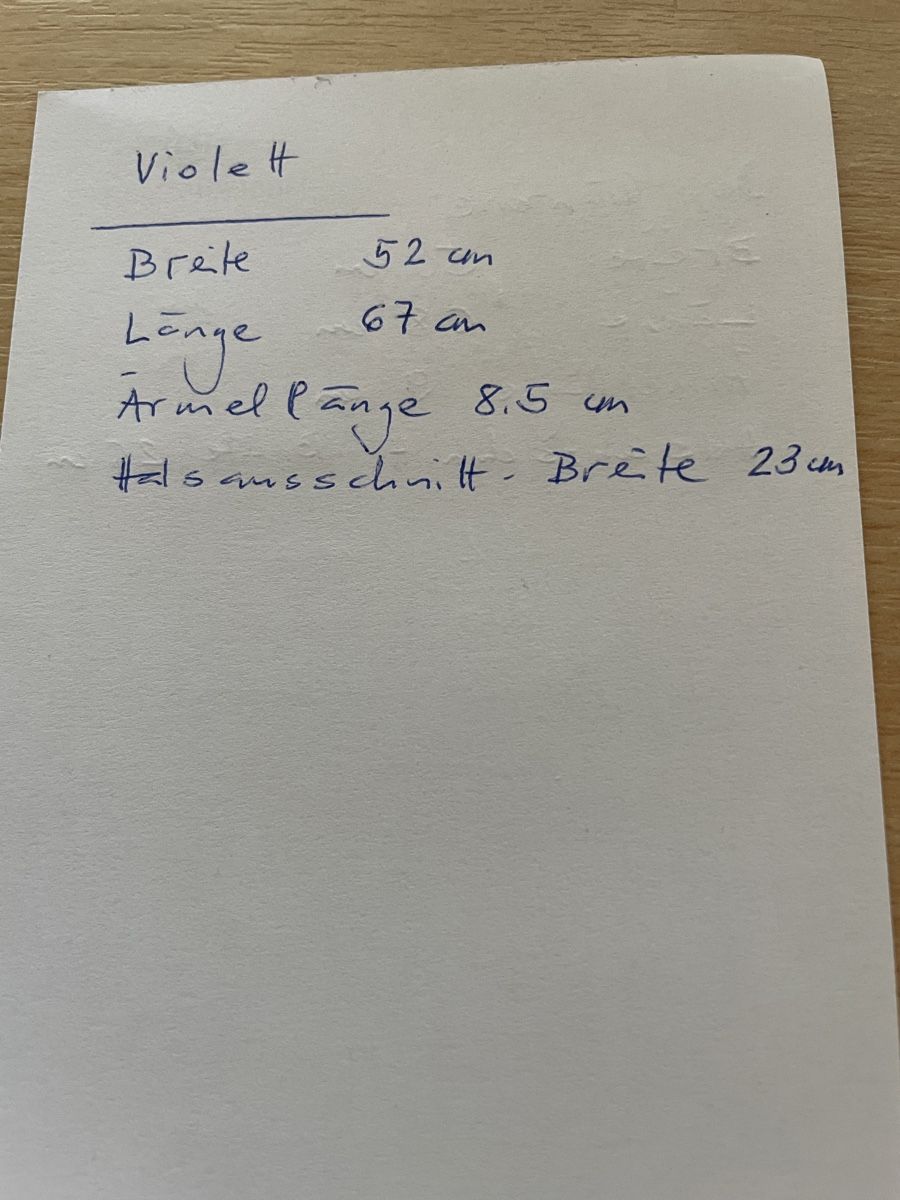 Violett
Breite 52 cm
Länge 67 cm
Ärmellänge 8.5 cm
Halsausschnitt - Breite 23 cm